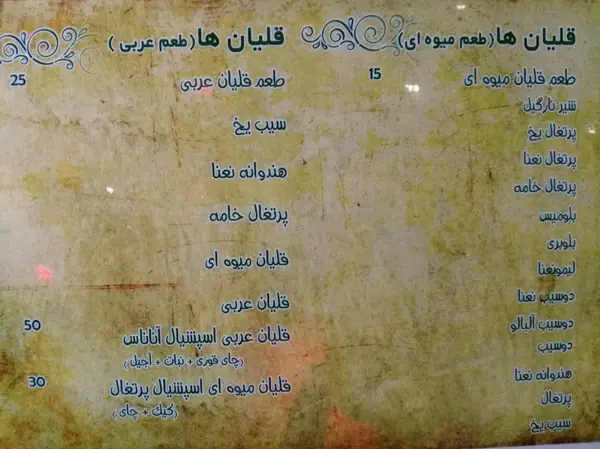 قلیان ها (طعم میوه ای)
طعم قلیان میوه ای 15
شیر نارگیل
پرتغال یخ
پرتغال نعنا
پرتغال خامه
بلومیس
بلوبری
لیمونعنا
دوسیب نعنا
دوسیب آلبالو
دوسیب
هندوانه نعنا
پرتغال
سیب یخ
قلیان ها (طعم عربی)
طعم قلیان عربی 25
سیب یخ
هندوانه نعنا
پرتغال خامه
قلیان میوه ای
قلیان عربی
قلیان عربی اسپشیال آناناس 50
(چای قوری + نبات + آجیل)
قلیان میوه ای اسپشیال پرتغال 30
(کیک + چای)